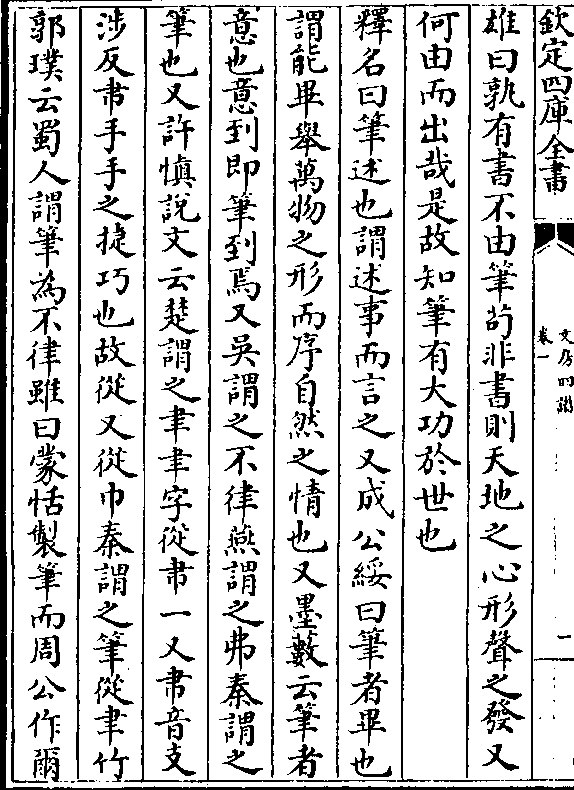 欽定四庫全書
文房四譜
卷一
一
雄曰孰有書不由筆苟非書則天地之心形聲之發又
何由而出哉是故知筆有大功於世也
釋名曰筆述也謂述事而言之又成公綏曰筆者畢也
謂能畢舉萬物之形而序自然之情也又墨藪云筆者
意也意到即筆到焉又吳謂之不律燕謂之弗秦謂之
筆也又許慎說文云楚謂之聿聿字從帇一又帇音支
涉反帇手手之捷巧也故從又從巾秦謂之筆從聿竹
郭璞云蜀人謂筆為不律雖曰蒙恬製筆而周公作爾